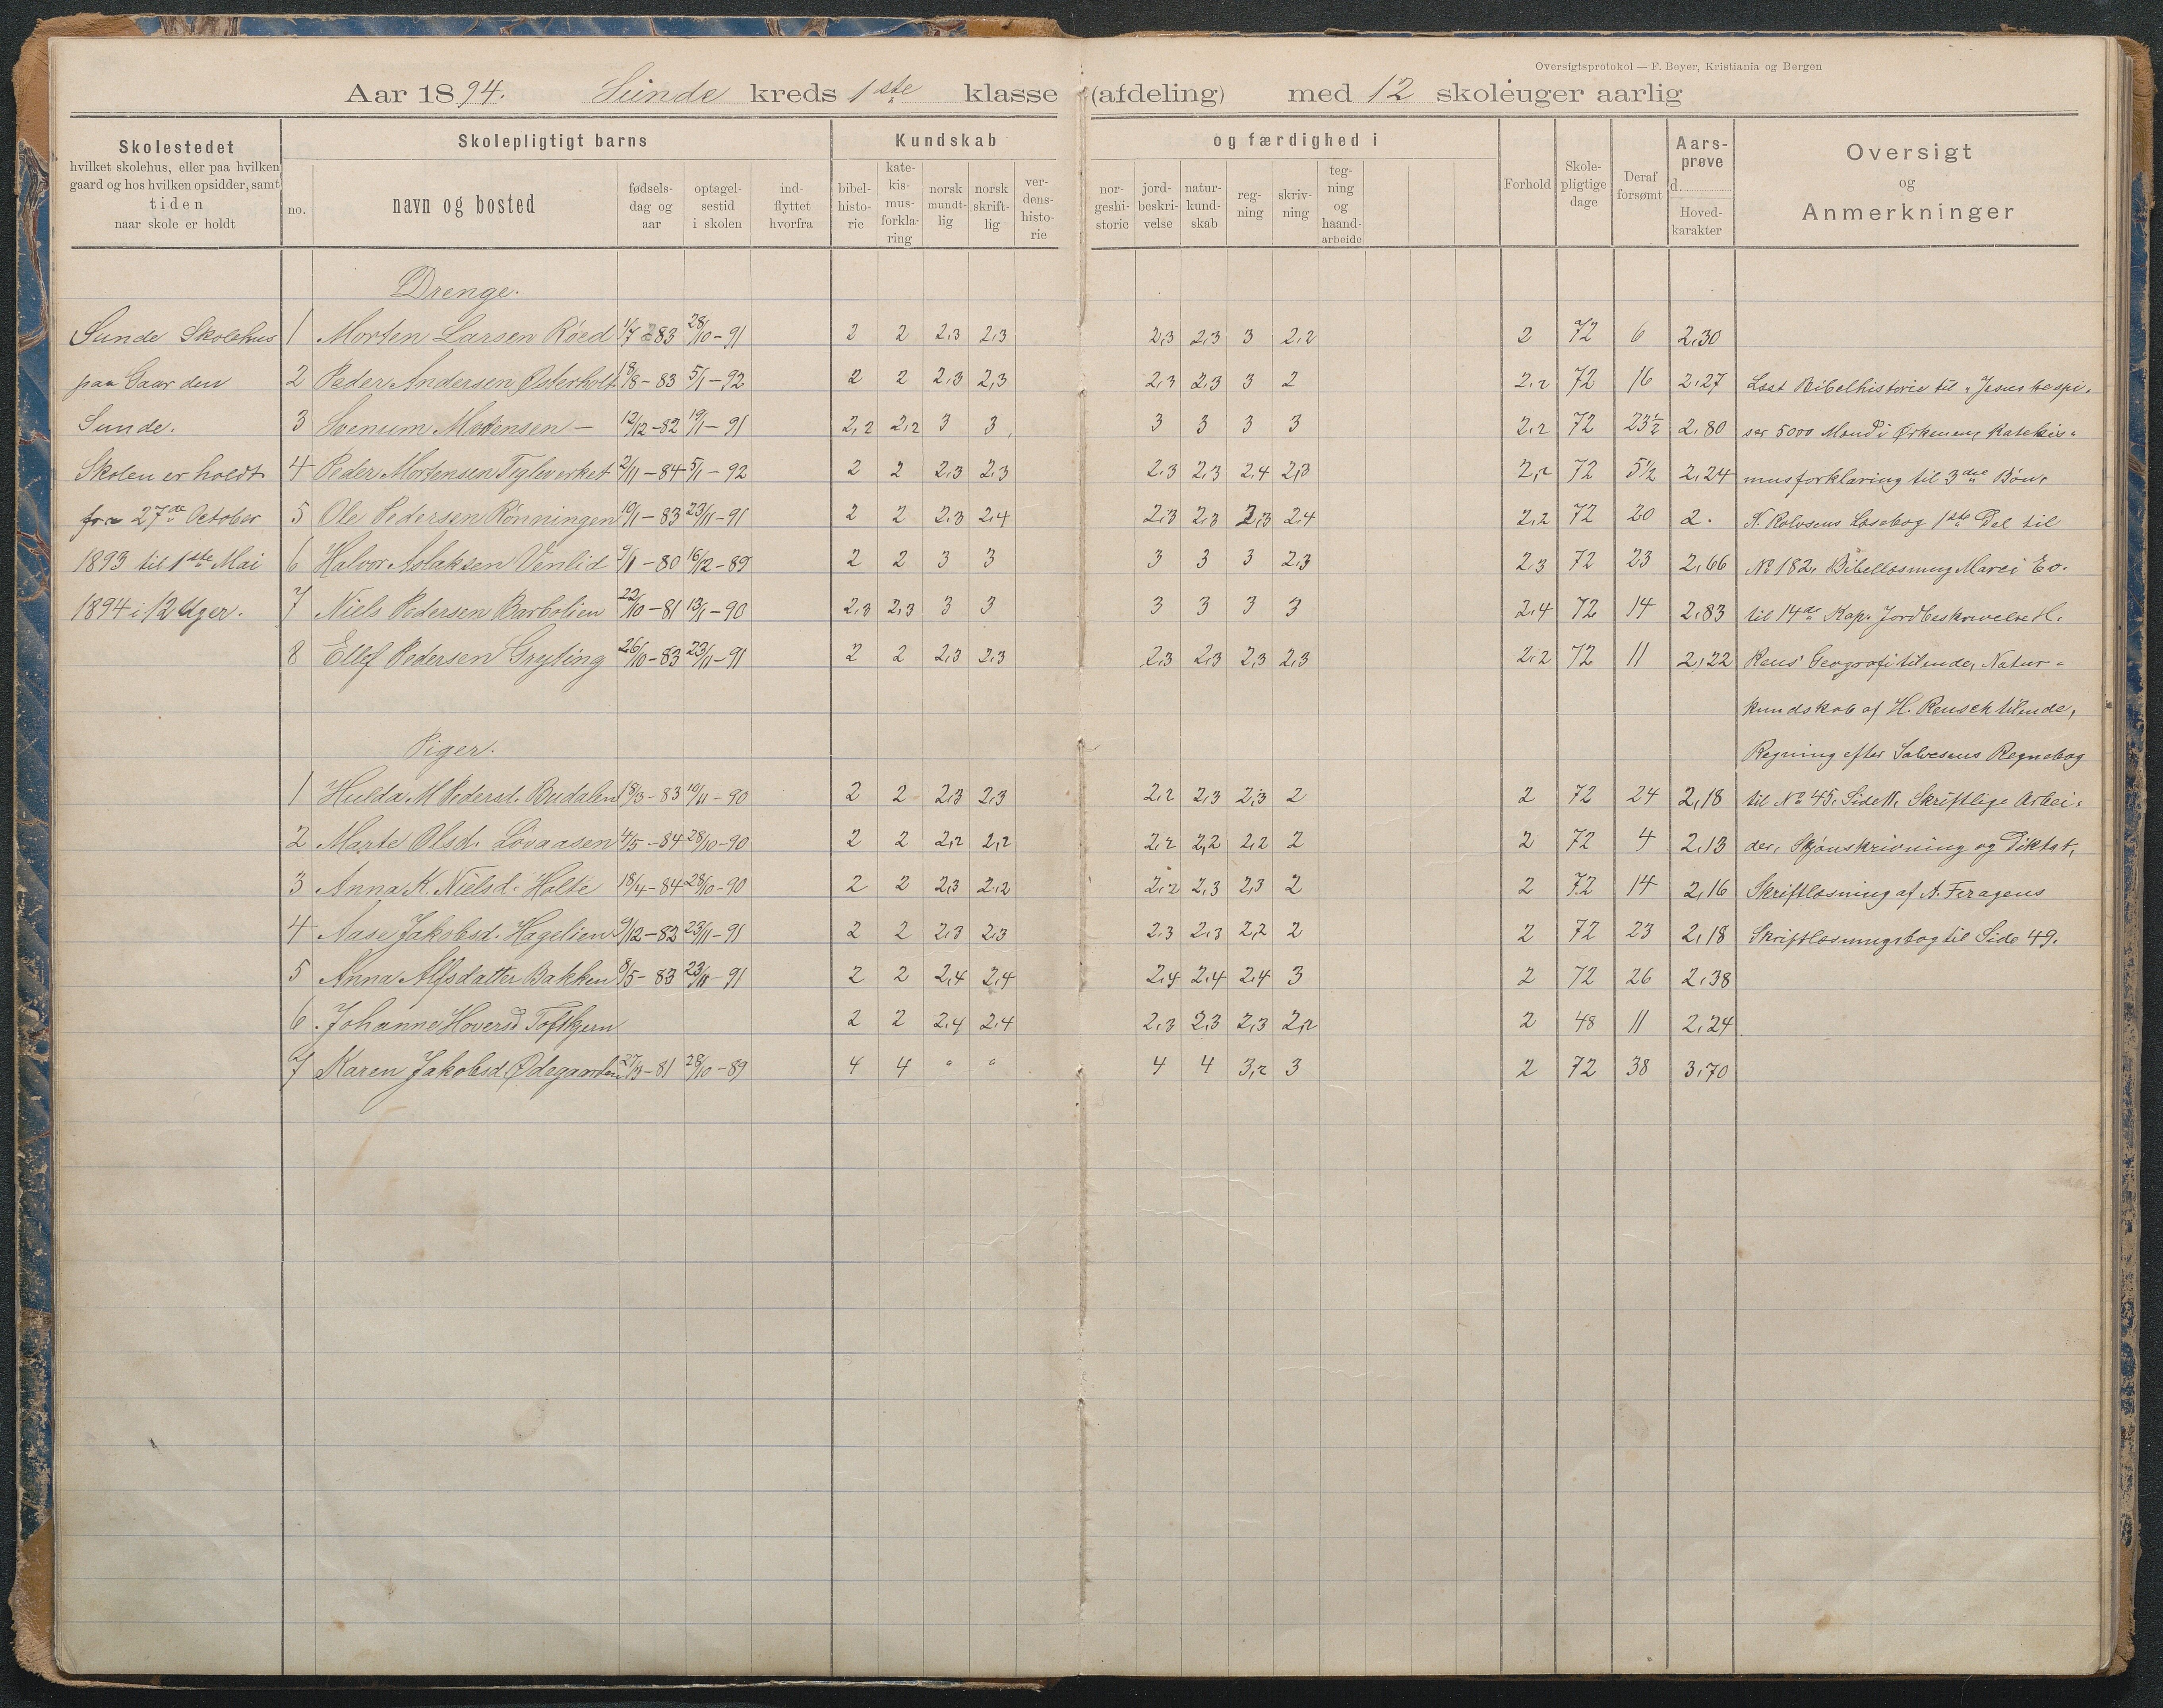 Oversigtsprotokol — F. Beyer, Kristiania og Bergen
Aar 1894. Sunde kreds 1ste klasse (afdeling) med 12 skoleuger aarlig
Skolestedet
hvilket skolehus, eller paa hvilken
gaard og hos hvilken opsidder, samt
tiden
naar skole er holdt
Skolepligtigt barns
no.
navn og bosted
fødsels-
dag og
aar
optagel-
sestid
i skolen
ind-
flyttet
hvorfra
Kundskab
bibel-
histo-
rie
kate-
kis-
mus-
forkla-
ring
norsk
mundt-
lig
norsk
skrift-
lig
ver-
dens-
histo-
rie
og færdighed i
nor-
geshi-
storie
jord-
beskri-
velse
natur-
kund-
skab
reg-
ning
skriv-
ning
teg-
ning
og
haand-
arbeide
Forhold
Skole-
pligtige
dage
Deraf
forsømt
Aars-
prøve
d.
Hoved-
karakter
Oversigt
og
Anmerkninger
Drenge.
Sunde Skolehus 1 Morten Larsen Røed 1/7 -83 28/10-91 2 2 2,3 2,3 2,3 2,3 3 2,2 2 72 6 2,30
paa Gaarden 2 Peder Andersen Østerholt 18/8-83 5/1-92 2 2 2,3 2,3 2,3 2,3 3 2 2,2 72 16 2,27 Læst Bibelhistorie til "Jesus bespi-
Sunde. 3 Svenum Mortensen — 12/12-82 19/1-91 2,2 2,2 3 3 3 3 3 3 2,2 72 23 1/2 2,80 ser 5000 Mand i Ørkenen, Katekis-
Skolen er holdt 4 Peder Mortensen Teglverket 2/11-84 5/1-92 2 2 2,3 2,3 2,3 2,3 2,4 2,3 2,2 72 5 1/2 2,24 musforklaring til 3die Bøn,
fra 27de October 5 Ole Pedersen Rønningen 19/1-83 23/11-91 2 2 2,3 2,4 2,3 2,3 2,3 2,4 2,2 72 20 2. N. Rolvsens Læsebog 1ste Del til
1893 til 1ste Mai 6 Halvor Aslaksen Venlid 9/1-80 16/12-89 2 2 3 3 3 3 3 2,3 2,3 72 23 2,66 No 182, Bibellæsning Marci Ev.
1894 i 12 Uger. 7 Niels Pedersen Barbolien 22/10-81 13/1-90 2,3 2,3 3 3 3 3 3 3 2,4 72 14 2,83 til 14de Kap. Jordbeskrivelse H.
8 Ellef Pedersen Gryting 26/10-83 23/11-91 2 2 2,3 2,3 2,3 2,3 2,3 2,3 2,2 72 11 2,22 Reus' Geografi tilende, Natur-
kundskab af H. Reusch tilende,
Piger. Regning efter Salvesens Regnebog
1 Hulda M Pedersd. Budalen 18/3-83 10/11-90 2 2 2,3 2,3 2,2 2,3 2,3 2 2 72 24 2,18 til No 45, Side 11, Skriftlige Arbei-
2 Marte Olsd. Løvaasen 4/5-84 28/10-90 2 2 2,2 2,2 2,2 2,2 2,2 2 2 72 4 2,13 der, Skjønskrivning og Diktat,
3 Anna K. Nielsd. Holte 18/4-84 28/10-90 2 2 2,3 2,2 2,2 2,3 2,3 2 2 72 14 2,16 Skriftlæsning af A. Feragens
4 Aase Jakobsd. Hagelien 9/12-83 23/11-91 2 2 2,3 2,3 2,3 2,3 2,2 2 2 72 23 2,18 Skriftlæsningsbog til Side 49.
5 Anna Alfsdatter Bakken 8/5-83 23/11-91 2 2 2,4 2,4 2,4 2,4 2,4 3 2 72 26 2,38
6. Johanne Hoversd Toftkjern 2 2 2,4 2,4 2,3 2,3 2,3 2,2 2 48 11 2,24
7 Karen Jakobsd Ødegaarden 27/3-81 28/10-89 4 4 " " 4 4 3,2 3 2 72 38 3,70